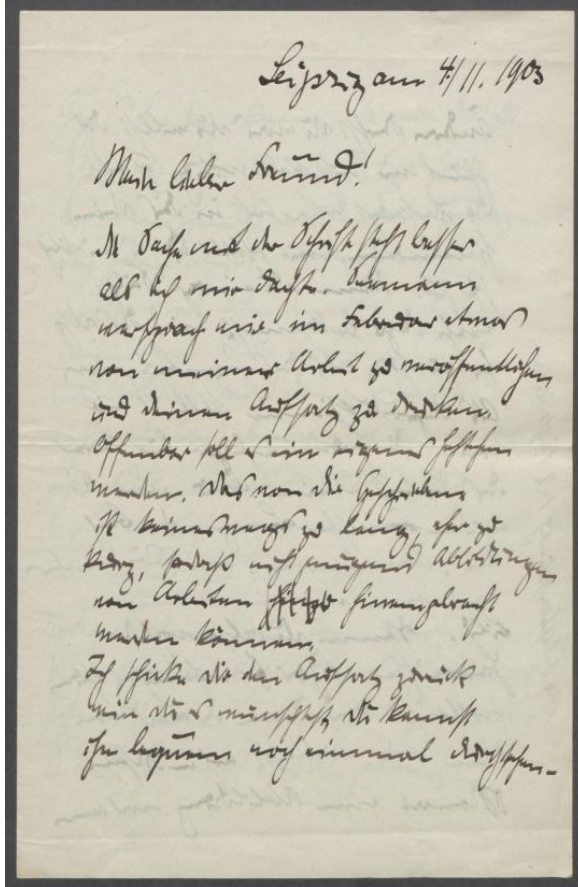 Leipzig am 4/11. 1903
Mein lieber Freund!
die Sache mit der Schrift steht besser
als ich mir dachte. Seemann
versprach mir im Februar etwas
von meiner Arbeit zu veröffentlichen
und deinen Aufsatz zu drucken.
Offenbar soll es ein eigenes Heftchen
werden. Das von dir Geschriebene
ist keineswegs zu lang, eher zu
kurz, sodaß nicht genügend Abbildungen
von Arbeiten hineingebracht
werden können.
Ich schicke dir den Aufsatz zurück
wie du es wünschest, du kannst
ihn bequem noch einmal durchsehen –